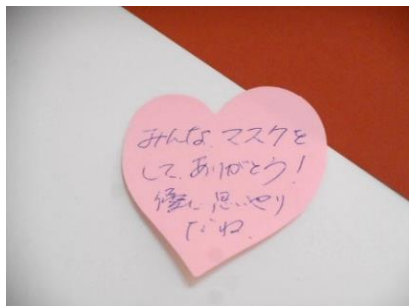 みんな、マスクを
して、ありがとう!
思いやり
だね